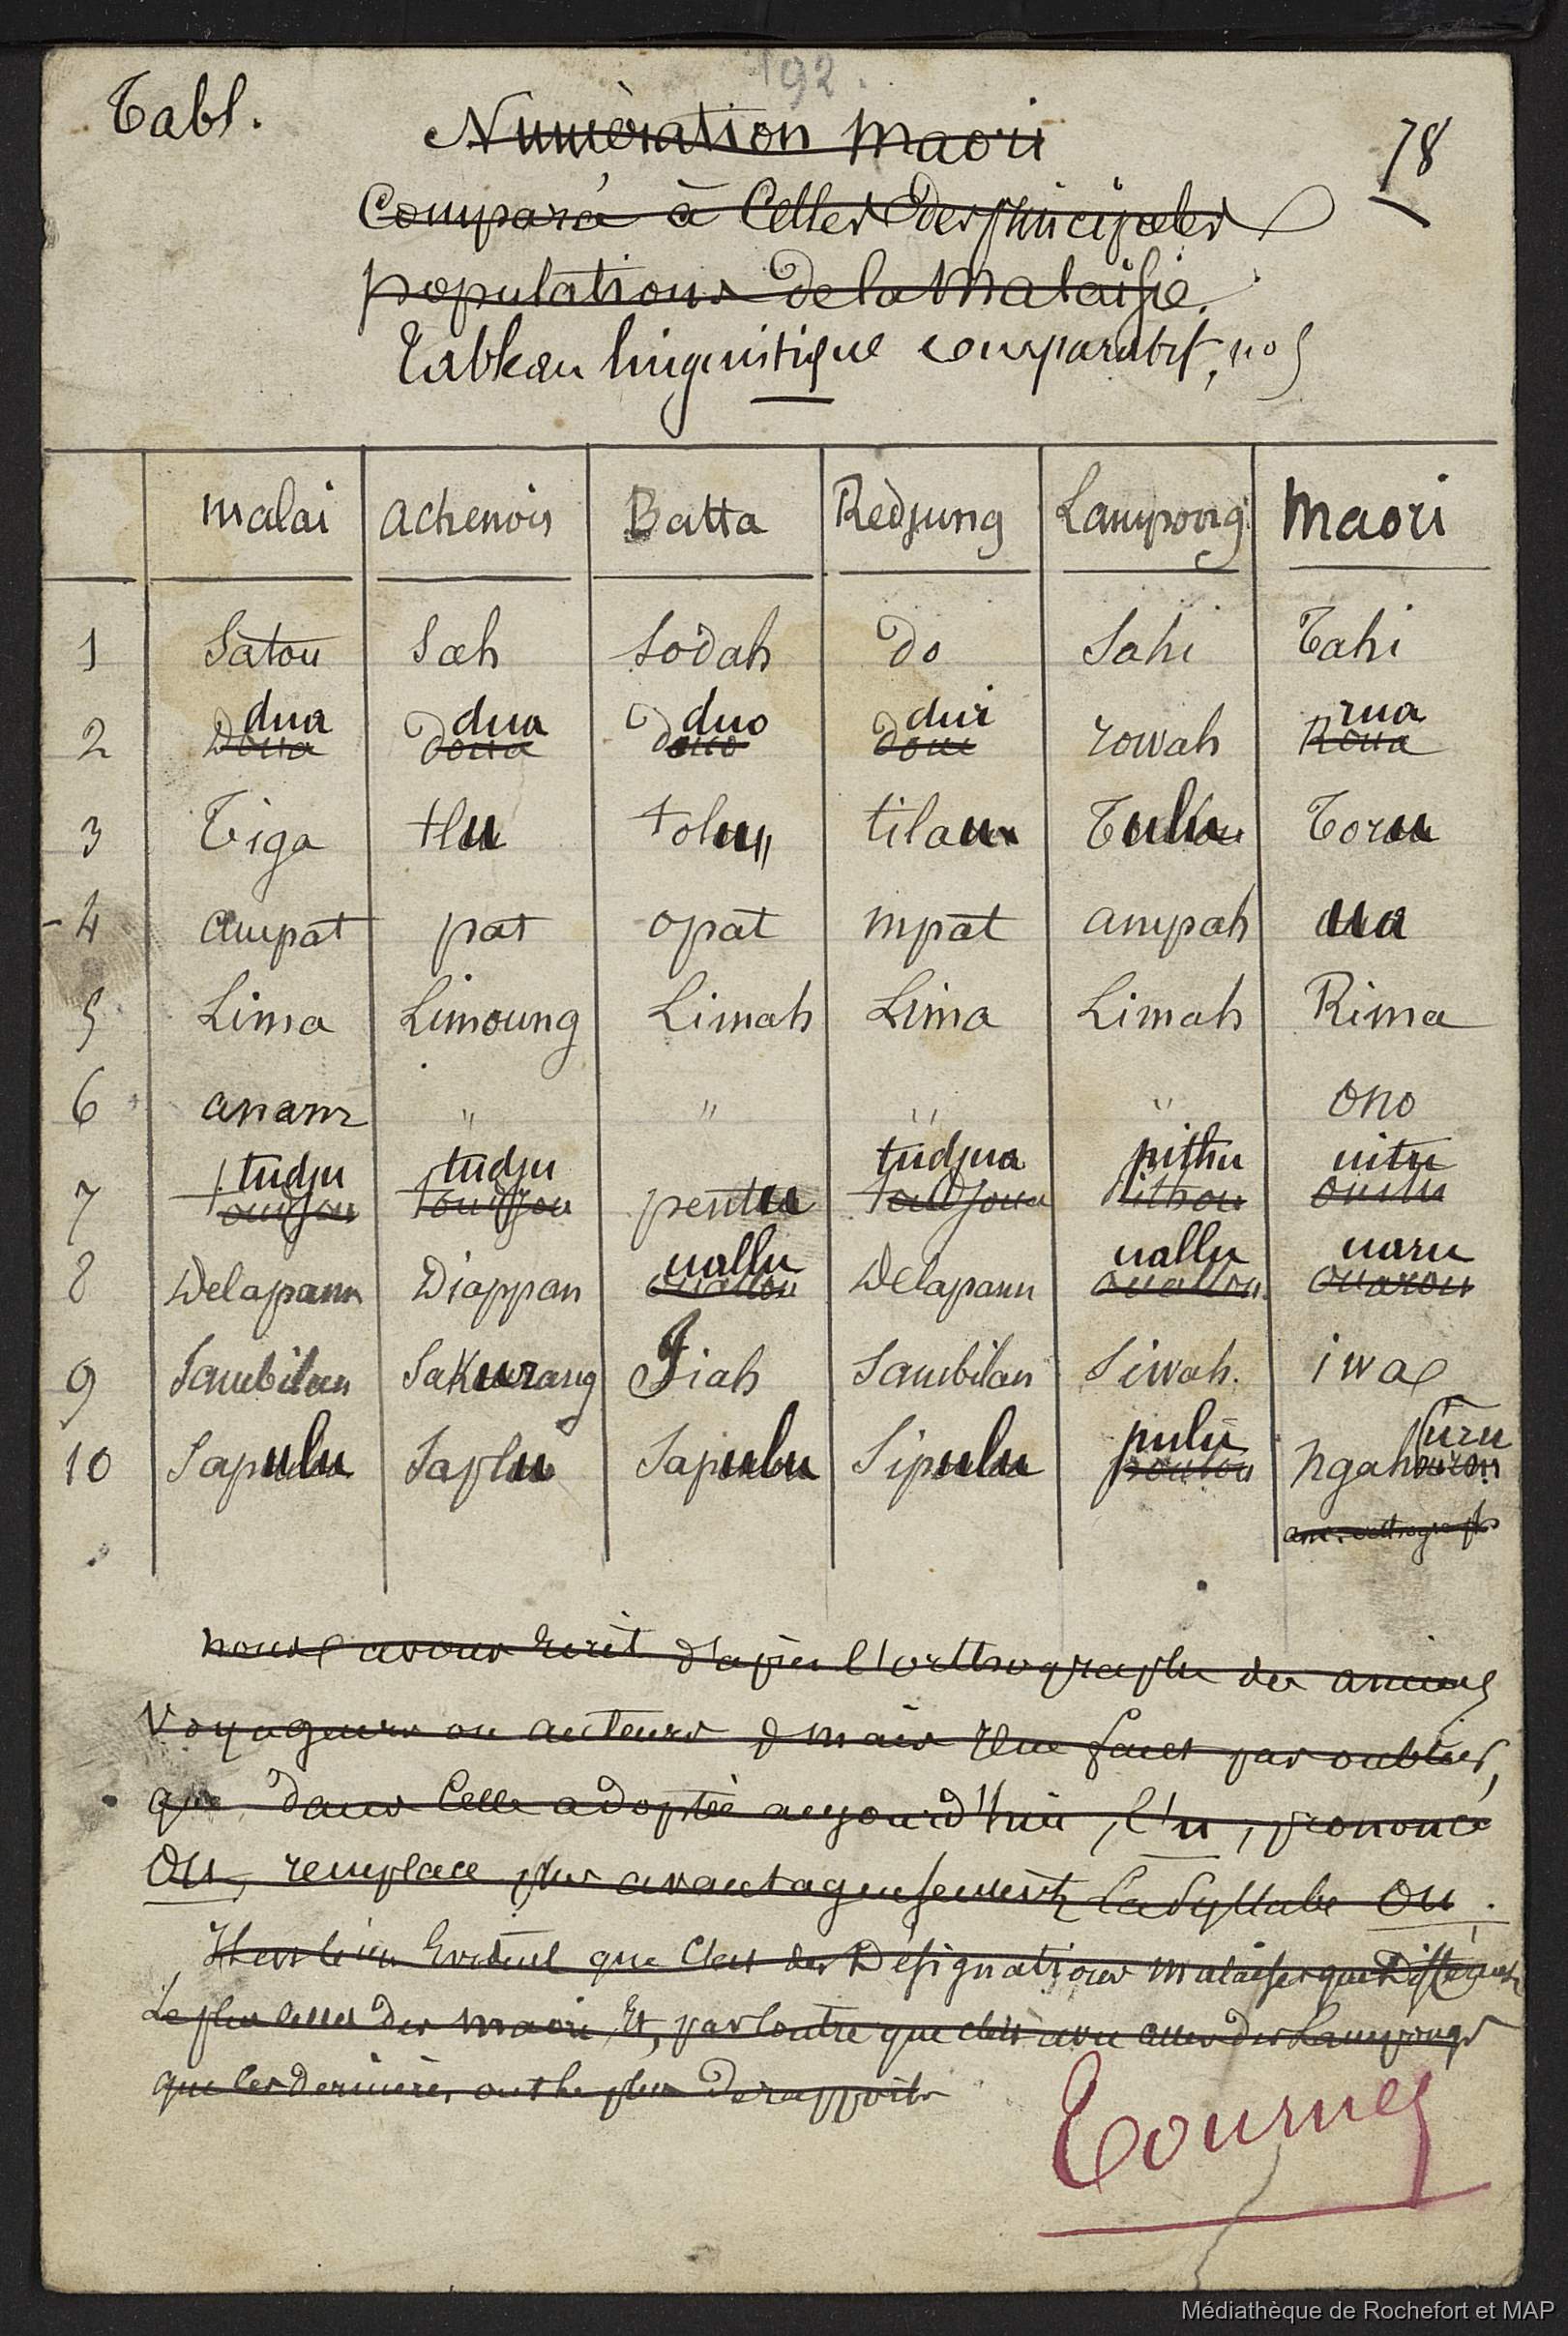 192.
Tabl.
78
Numération Maori
Comparée à Celles des principales
populations de la Malaisie.
Tableau linguistique comparatif, no 5
malai achenois Batta Redjung Lampoong Maori
1 Satou Sah Sodah Do Sahi Tahi
dua dua duo dui rua
2 Doua Doua Douo Doui rowah Roua
3 Tiga tlu tolu tilau Tulu Toru
4 ampat pat opat mpat ampah ua
5 Lima Limoung Limah Lima Limah Rima
6 anam " " " " ono
tudju tudju tudjua pithu uitu
7 toudjou toudjou pentu toudjoua pithou ouitu
uallu uallu uaru
8 Delapann Diappan ouallou Delapann ouallou ouarou
9 Sambilan Sakurang Siah Sambilan Siwah. iwa
pulu uru
10 Sapulu Saplu Sapulu Sipulu poulou Ngahourou
anc. orthographe
nous avons écrit d'après l'orthographe des anciens
voyageurs ou auteurs mais il ne faut pas oublier,
que dans Celle adoptée aujourd'hui, l'u, prononcé
ou, remplace plus avantageusement la Syllabe ou.
Il est bien Evident que C'est des Désignations malaises que Diffèrent
Le plus celles des maori, Et, par contre que c'est avec celles des Lampongs
que ces dernières ont le plus de rapports
Tournez
Médiathèque de Rochefort et MAP